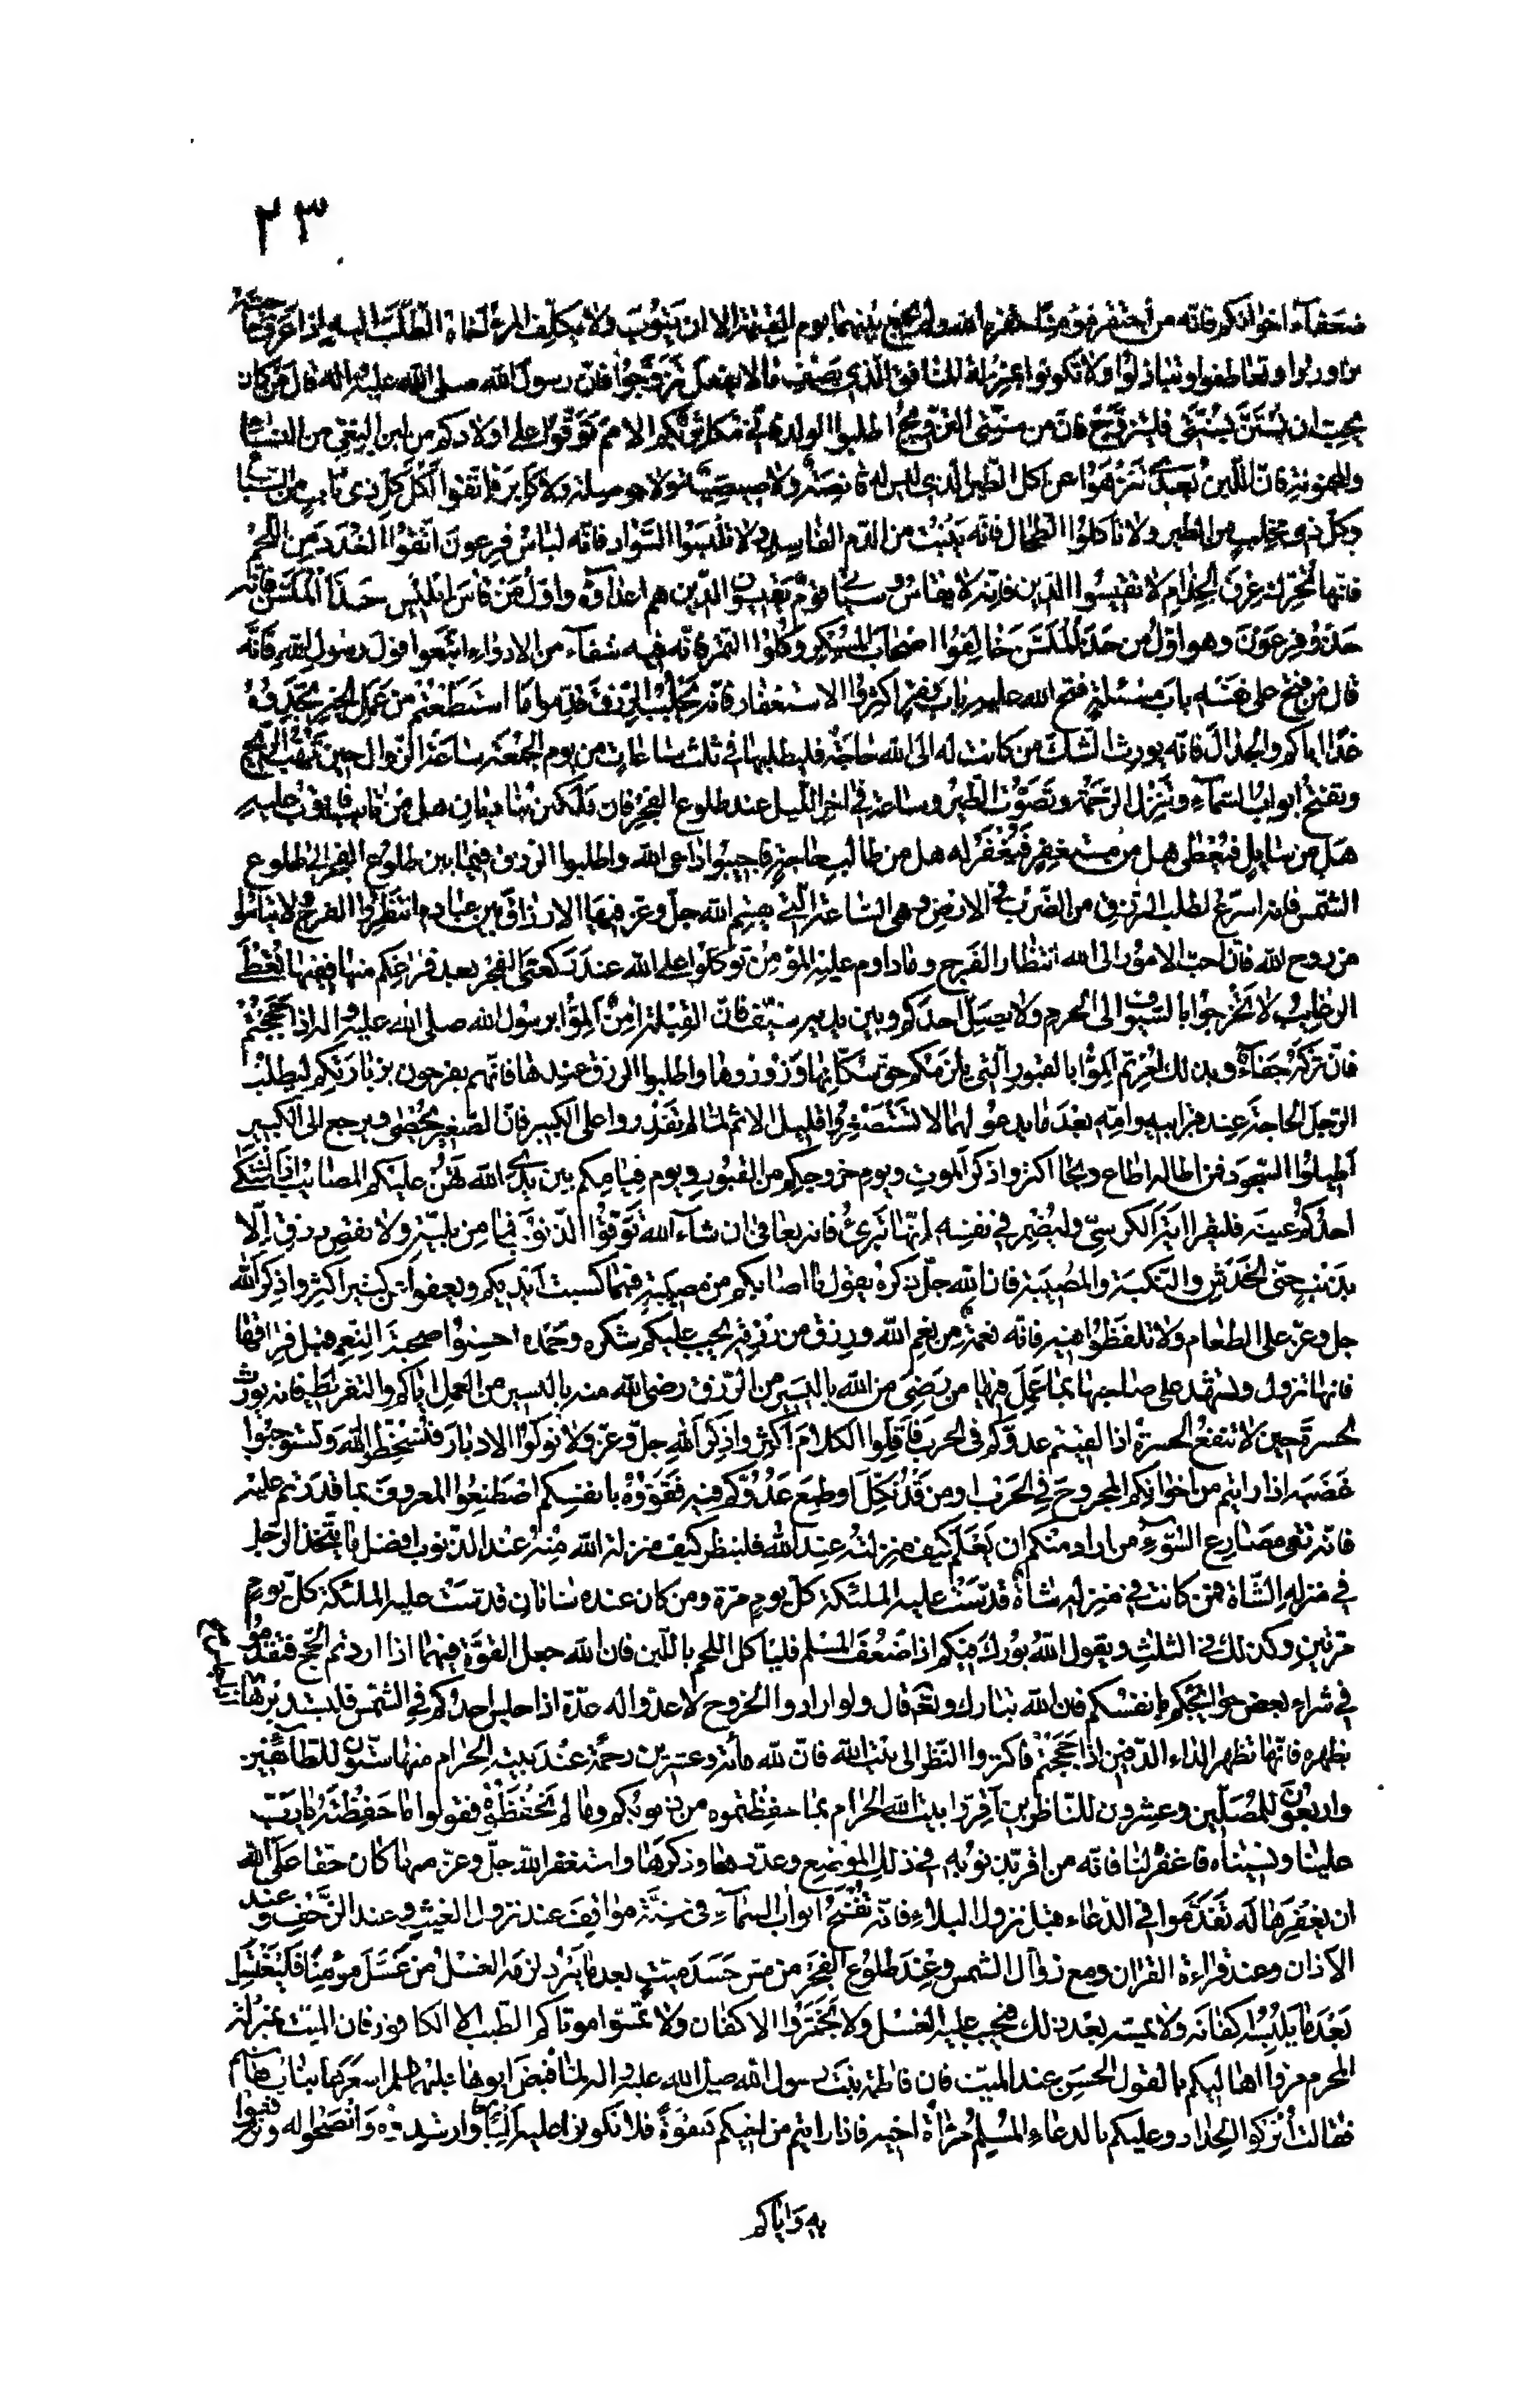 ٢٣
ضعفآء اخوانكم فانّه من احتقر مؤمنا لم يجمع بينهما يوم القيمة الا ان يتوب ولا يكلّف المرء اخاه الطّلب اليه اذا عرف حاجته
تزاوروا وتعاطفوا وتباذلوا ولا تكونوا بمنزلة المنافق الّذي يصف ما لا يفعل تزوّجوا فانّ رسول الله صلى الله عليه واله قال من كان
يحبّ ان يستنّ بسنّتى فليتزوّج فانّ من سنّتى التزويج اطلبوا الولد فانّى مكاثر بكم الامم توقّوا على اولادكم من لبن البغىّ من النساء
والمجنونة فانّ اللّبن يعدى تنزّهوا عن اكل الطّير الّذى ليس له قانصة ولا صيصية ولا حوصلة ولا كابرة واتقوا اكل كلّ ذى ناب من السّباع
وكلّ ذى مخلب من الطير ولا تأكلوا الطّحال فانّه ينبت من الدّم الفاسد ولا تلبسوا السّواد فانّه لباس فرعون اتّقوا الغدد من اللّحم
فانّها تحرّك عرق الجذام لا تقيسوا الدّين فانّه لا يقاس وسيأتى قوم يقيسون الدّين هم اعداؤه واوّل من قاس ابليس حذآء الملسّن فانّه
حذو فرعون وهو اوّل من حذا الملسّن خالفوا اصحاب المسكر وكلوا التّمر فانّه فيه شفآء من الادواء اتّبعوا قول رسول الله فانّه
قال من فتح على نفسه باب مسئلة فتح الله عليه باب فقر اكثروا الاستغفار فانّه يجلب الرّزق قدّموا ما استطعتم من عمل الخير تجدوه
غدا ايّاكم والجدال فانّه يورث الشكّ من كانت له الى الله حاجة فليطلبها فى ثلث ساعات من يوم الجمعة ساعة الزّوال حين تهبّ الرّيح
وتفتح ابواب السّمآء وتنزل الرّحمة وتصوّت الطّير وساعة فى اخر اللّيل عند طلوع الفجر فان ملكين يناديان هل من تائب فاتوب عليه
هل من سائل فيعطى هل من مستغفر فيغفر له هل من طالب حاجة فاجيبوا داعى الله واطلبوا الرّزق فيما بين طلوع الفجر الى طلوع
الشّمس فانه اسرع لطلب الرّزق من الضّرب فى الارض وهى السّاعة الّتى يقسم الله جلّ وعزّ فيها الارزاق بين عباده انتظروا الفرج ولا تيأسوا
من روح الله فانّ احبّ الامور الى الله انتظار الفرج وما داوم عليه المؤمن توكّلوا على الله عند ركعتى الفجر بعد فراغكم منها ففيها تعطى
الرّغايب لا تخرجوا بالسّيوف الى الحرم ولا يصلّ احدكم وبين يديه سيف فانّ القبلة امن المّوا برسول الله صلى الله عليه واله اذا حججتم
فانّ تركه جفآء وبذلك امرتم المّوا بالقبور الّتى يلزمكم حقّ سكّانها وزوروها واطلبوا الرزق عندها فانّهم يفرحون بزيارتكم ليطلب
الرّجل الحاجة عند قبر ابيه وامّه بعد ما يدعو لهما لا تستصغروا قليل الاثم لمّا لم تقدروا على الكبير فانّ الصّغير يحصى ويرجع الى الكبير
اطيلوا السّجود فمن اطاله اطاع ونجا اكثروا ذكر الموت ويوم خروجكم من القبور ويوم قيامكم بين يدى الله تهن عليكم المصائب اذا اشتكى
احدكم عينه فليقرا اية الكرسىّ وليضمر فى نفسه انّها تبرئ فانه يعافى ان شآء الله توقّوا الذّنوب فما من بليّة ولا نقص رزق الّا
بذنب حتى الخدش والنّكبة والمصيبة فان الله جلّ ذكره يقول ما اصابكم من مصيبة فبما كسبت ايديكم ويعفوا عن كثير اكثروا ذكر الله
جل وعزّ على الطعام ولا تلفظوا فيه فانّه نعمة من نعم الله ورزق من رزقه يجب عليكم شكره وحمده احسنوا صحبة النّعم قبل فراقها
فانها تزول وتشهد على صاحبها بما عمل فيها من رضى من الله باليسير من الرّزق رضى الله منه باليسير من العمل ايّاكم والتّفريط فانه يورث
الحسرة حين لا تنفع الحسرة اذا لقيتم عدوّكم فى الحرب فاقلّوا الكلام اكثروا ذكر الله جلّ وعزّ ولا تولّوا الادبار فتسخطوا الله وتستوجبوا
غضبه اذا رايتم من اخوانكم المجروح فى الحرب او من قد نكّل او طمع عدوّكم فيه فقوّوه بانفسكم اصطنعوا المعروف بما قدرتم عليه
فانّه تقى مصارع السّوء من اراد منكم ان يعلم كيف منزلته عند الله فلينظر كيف منزلة الله منه عند الذّنوب افضل ما يتّخذ الرّجل
فى منزله الشّاة فمن كانت فى منزله شاة قدّست عليه الملئكة كلّ يوم مرّة ومن كان عنده شاتان قدّست عليه الملئكة كلّ يوم
مرّتين وكذلك فى الثلث ويقول الله بورك فيكم اذا ضعف المسلم فليأكل اللحم باللّبن فان الله جعل القوّة فيهما اذا اردتم الحجّ فتقدّموا
فى شراء بعض حوائجكم بانفسكم فان الله تبارك وتعالى قال ولو ارادوا الخروج لاعدّوا له عدّة اذا جلس احدكم فى الشّمس فليستدبرها
بظهره فانّها تظهر الداء الدّفين اذا حججتم فاكثروا النّظر الى بيت الله فانّ لله مائة وعشرين رحمة عند بيته الحرام منها ستّون للطّآئفين
واربعون للمصلّين وعشرون للنّاظرين اقرّوا ببيت الله الحرام بما حفظتموه من ذنوبكم وما لم تحفظوه فقولوا ما حفظته يا ربّ
علينا ونسيناه فاغفر لنا فانّه من اقرّ بذنوبه فى ذلك الموضع وعدّدها وذكرها واستغفر الله جلّ وعزّ منها كان حقا على الله
ان يغفرها له تقدّموا فى الدّعاء قبل نزول البلاء فانّه تفتح ابواب السّمآء فى ستّة مواقف عند نزول الغيث وعند الزّحف وعند
الاذان وعند قراءة القران ومع زوال الشمس وعند طلوع الفجر من مسّ جسد ميّت بعد ما يبرد لزمه الغسل من غسّل مؤمنا فليغتسل
بعد ما يلبسه اكفانه ولا يمسّه بعد ذلك فيجب عليه الغسل ولا تجمّروا الاكفان ولا تمسّوا موتاكم الطّيب الا الكافور فان الميت بمنزلة
المحرم مروا اهاليكم بالقول الحسن عند الميّت فان فاطمة بنت رسول الله صلى الله عليه واله لمّا قبض ابوها اسعدتها بنات هاشم
فقالت اتركوا الحداد وعليكم بالدعاء المسلم مراة اخيه فاذا رايتم من اخيكم هفوة فلا تكونوا عليه البا وارشدوه وانصحوا له وترفّقوا
به وايّاكم